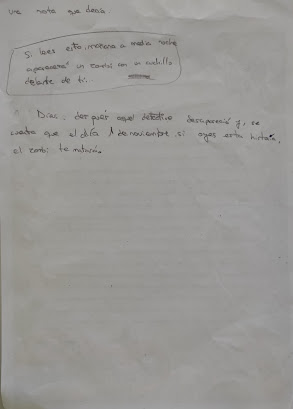 una nota que decía.
Si lees esto, mañana a media noche
aparecerá un zombi con un cuchillo
delante de ti.
Días después aquel detective desapareció y, se
cuenta que el día 1 de noviembre si oyes esta historia,
el zombi te matará.